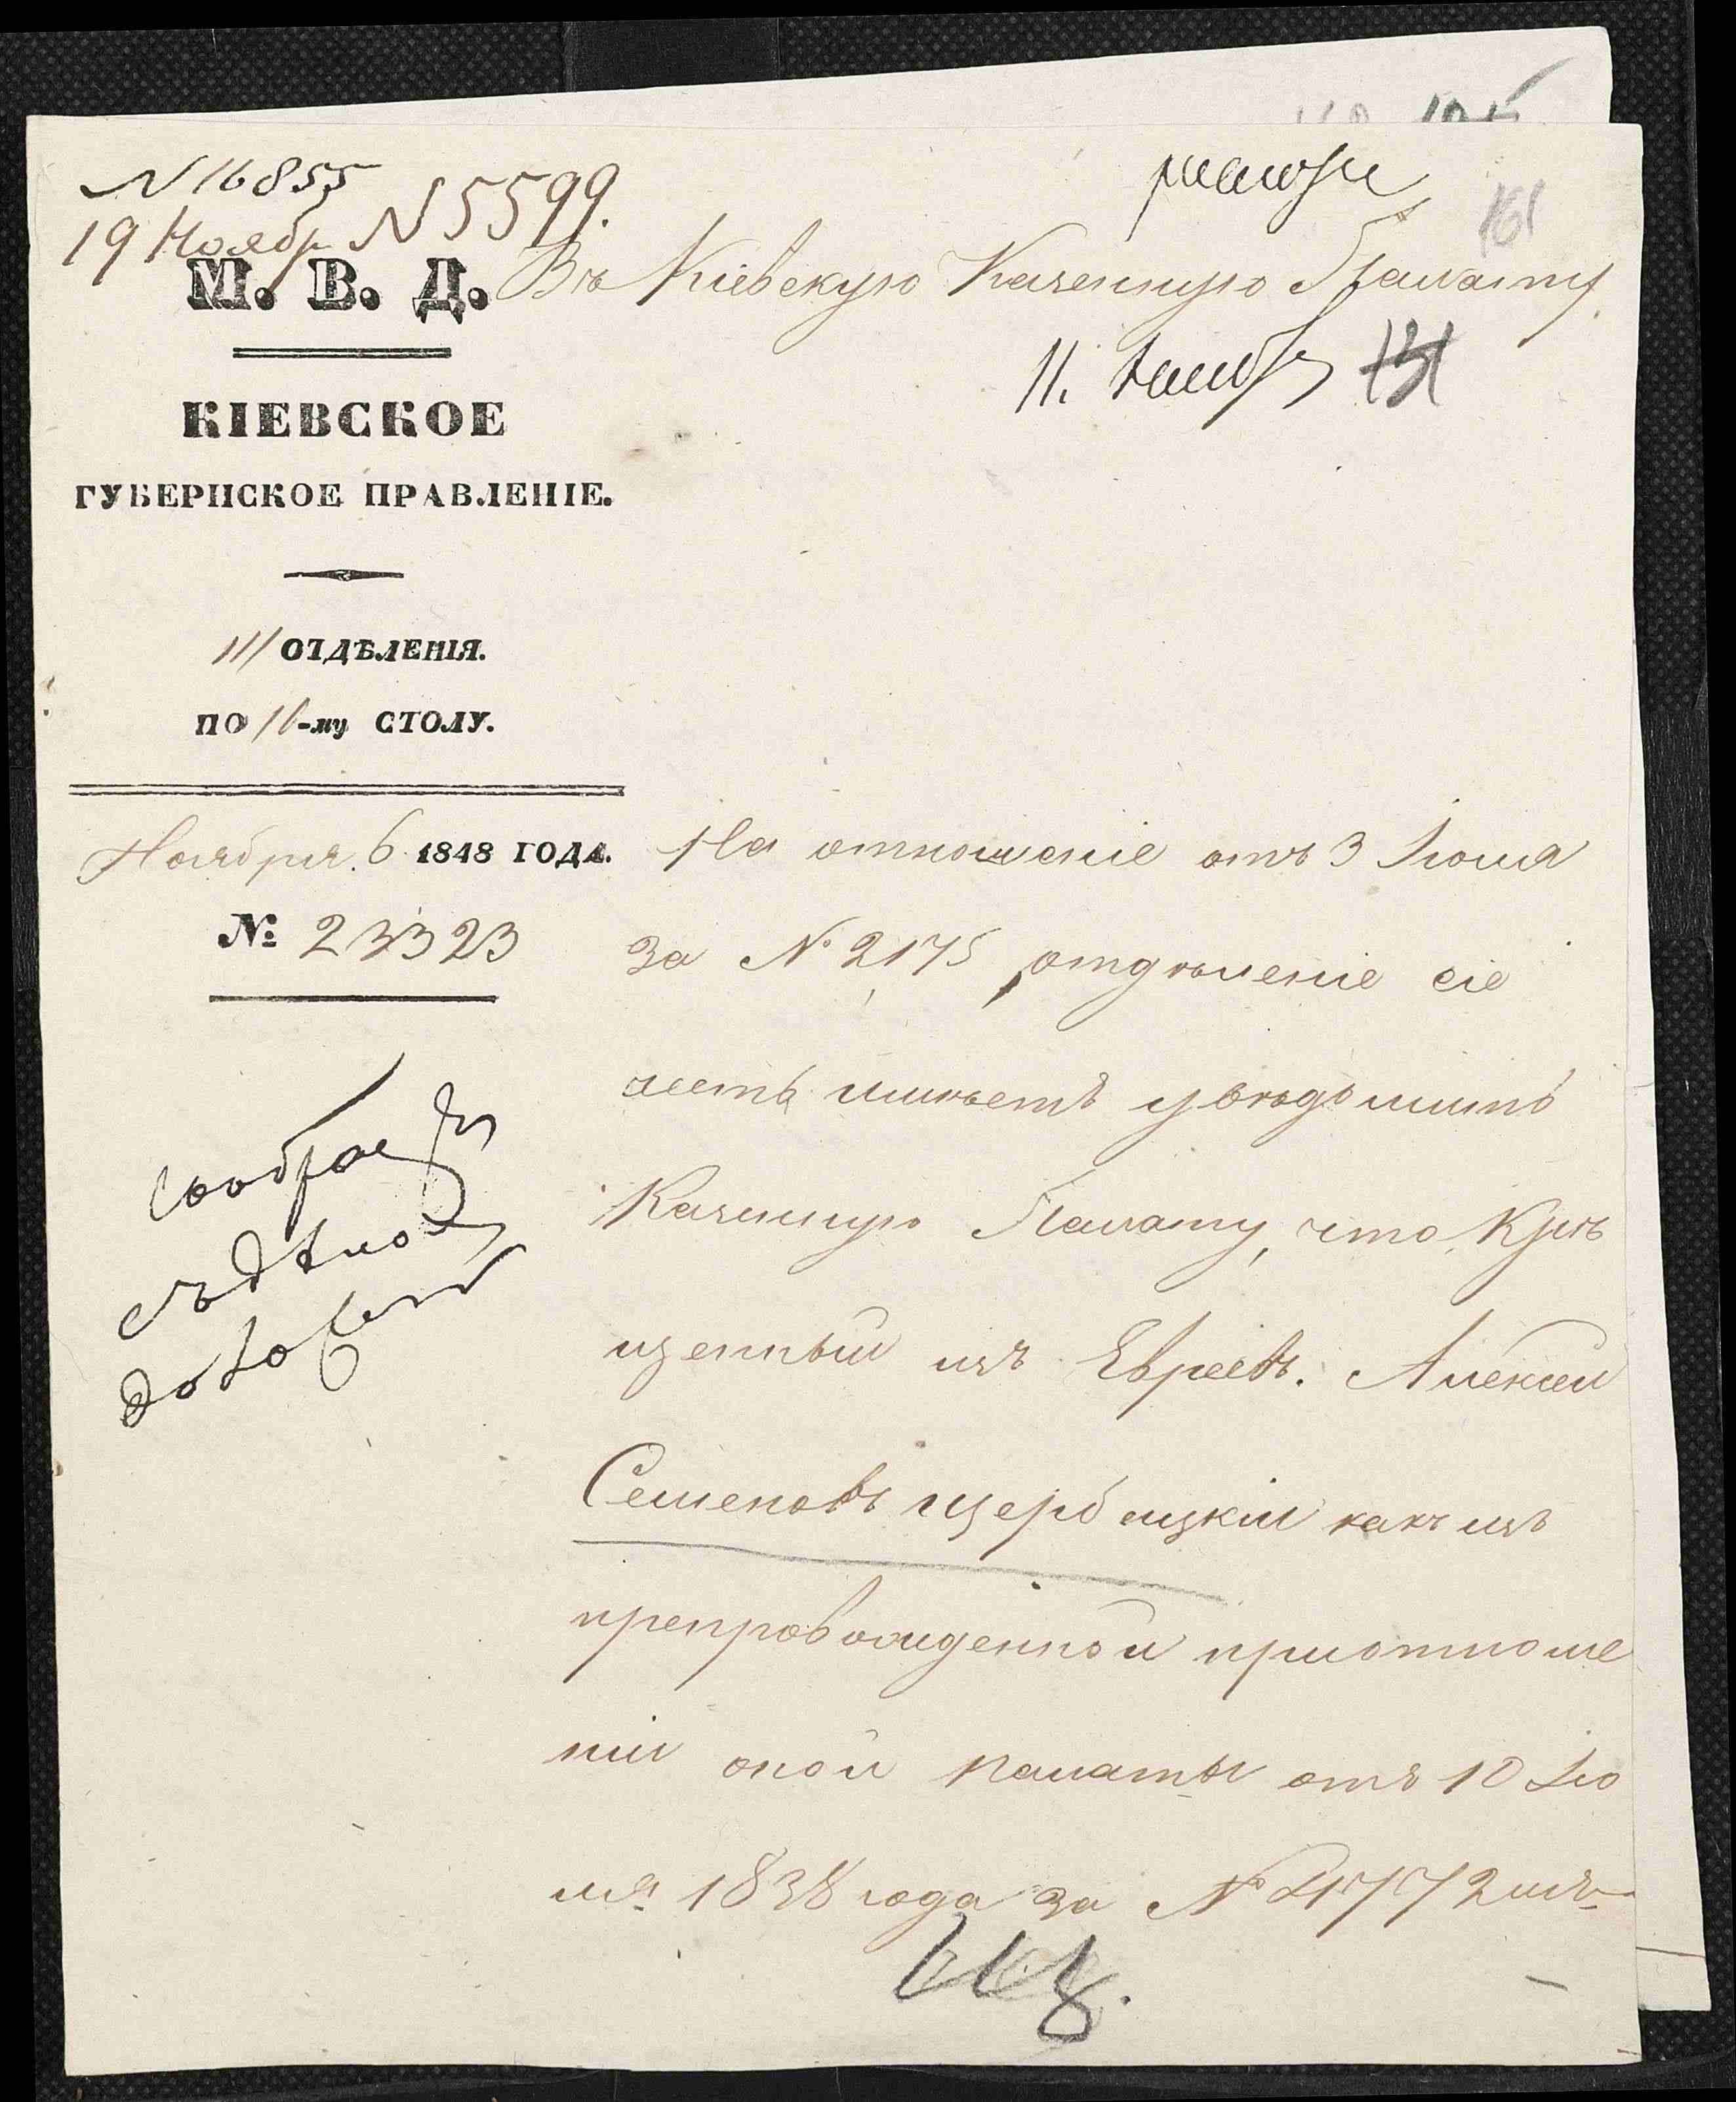 N 16855
19 Ноябр N 5599.
М. В. Д.
КІЕВСКОЕ
ГУБЕРНСКОЕ ПРАВЛЕНІЕ.
III ОТДѢЛЕНІЯ.
ПО 16-му СТОЛУ.
Ноября 6 1848 ГОДА.
№: 23323
161
Въ Кіевскую Казенную Палату.
11. Ноября 131
На отношеніе отъ 3 Іюня
за № 2175, отдѣленіе сіе
честь имѣетъ увѣдомить
Казенную Палату, что Кре
щенный изъ Евреевъ Алексей
Семеновъ Щербицкій какъ изъ
препровожденной при отноше
ніи оной палаты отъ 10 Iю
ля 1838 года за № 4772
118.